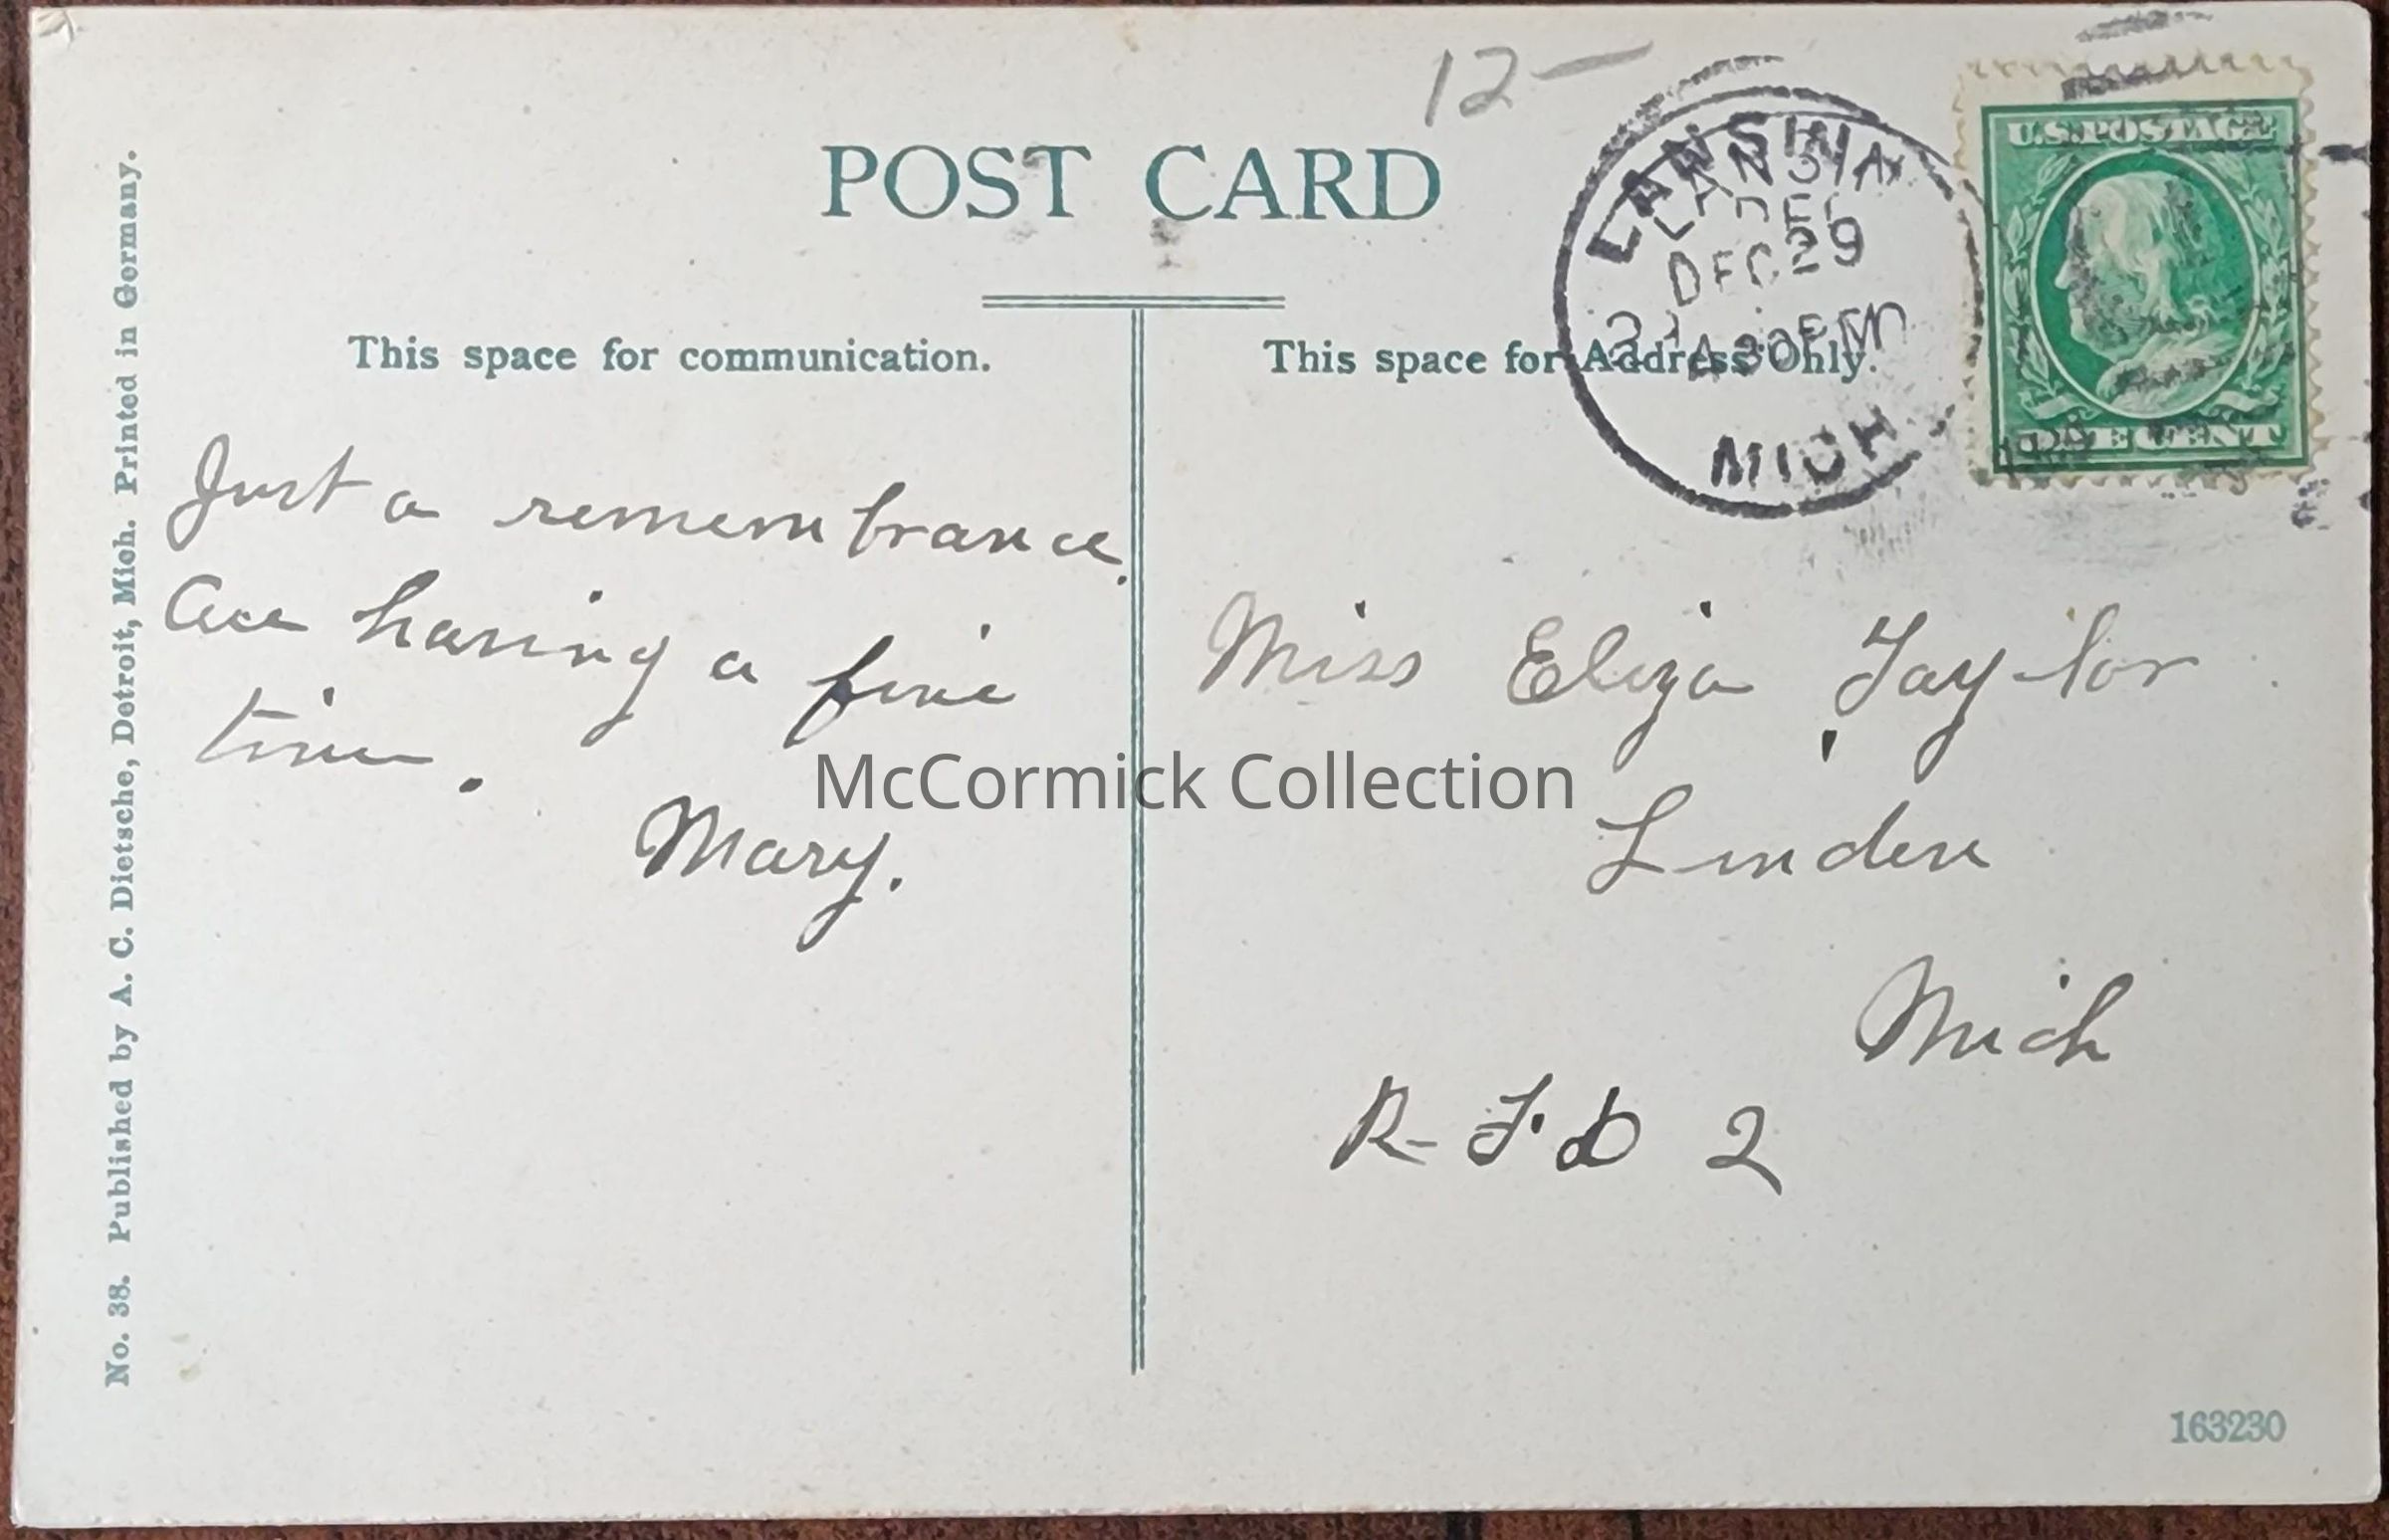 12—
POST CARD
LANSING
LANSIN
DEC
DEC 29
30 PM
MICH
U.S. POSTAGE
ONE CENT
This space for communication.
This space for Address Only.
Just a remembrance.
Am having a fine
time.
Mary.
Miss Eliza Taylor
Linden
Mich
R. F. D 2
McCormick Collection
No. 38. Published by A. C. Dietsche, Detroit, Mich. Printed in Germany.
163230